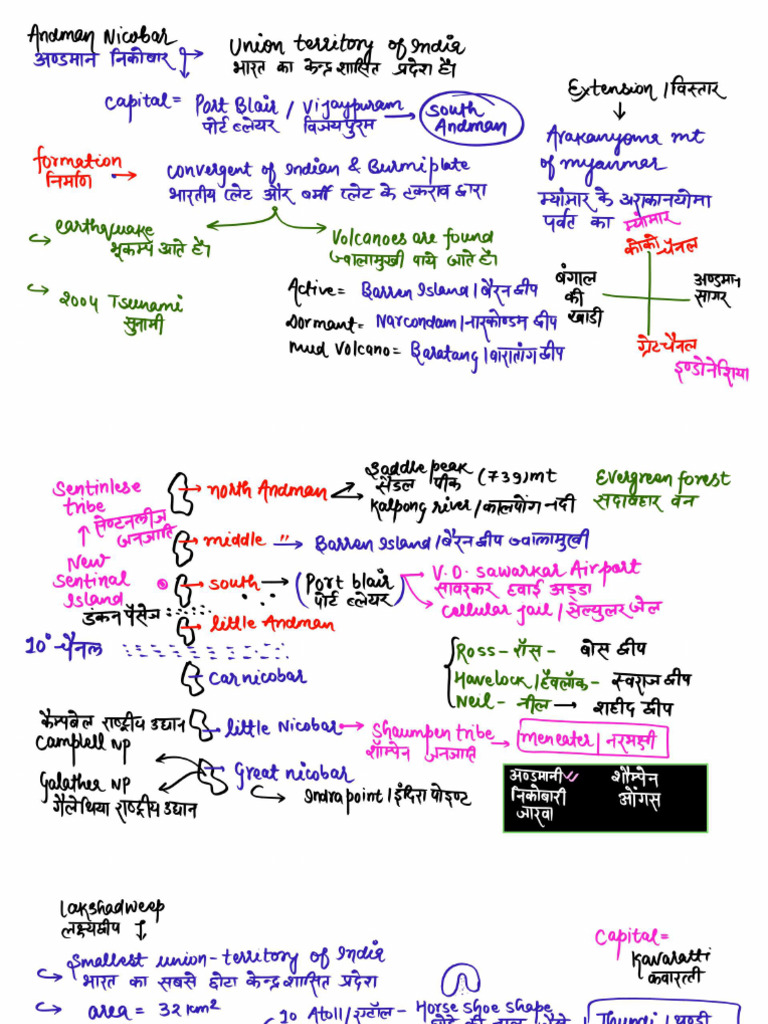 Andman Nicobar
अण्डमान निकोबार
Union territory of India
भारत का केन्द्र शासित प्रदेश है।
Capital = Port Blair / Vijaypuram
पोर्ट ब्लेयर विजयपुरम
South
Andman
Extension / विस्तार
Arakanyoma mt
of myanmar
म्यांमार के अराकानयोमा
पर्वत का
formation
निर्माण
Convergent of Indian & Burmi plate
भारतीय प्लेट और बर्मी प्लेट के टकराव द्वारा
earthquake
भूकम्प आते है।
Volcanoes are found
ज्वालामुखी पाये जाते है।
2004 Tsunami
सुनामी
Active = Barren Island / बैरन द्वीप
Dormant = Narcondam / नारकोण्डम द्वीप
Mud Volcano = Baratang / बारातांग द्वीप
म्यांमार
कोको चैनल
बंगाल
की
खाडी
अण्डमान
सागर
ग्रेट चैनल
इण्डोनेशिया
Sentinlese
tribe
सेण्टनलीज
जनजाति
New
Sentinal
Island
north Andman
Saddle peak
सैडल पीक (739) mt
Kalpong river / कालपोंग नदी
Evergreen forest
सदावहार वन
middle "
Barren Island / बैरन द्वीप ज्वालामुखी
South
(Port blair)
पोर्ट ब्लेयर
V.D. sawarkar Airport
सावरकर हवाई अड्डा
Cellular jail / सेल्युलर जेल
डंकन पैसेज
little Andman
10° चैनल
Car nicobar
Ross - रॉस - बोस द्वीप
Havelock / हैवलॉक - स्वराज द्वीप
Neil - नील → शहीद द्वीप
कैम्पबेल राष्ट्रीय उद्यान
Camplell NP
little Nicobar
Shaumpen tribe
शॉम्पेन जनजाति
meneater / नरभक्षी
Galather NP
गैलेथिया राष्ट्रीय उद्यान
Great nicobar
Indra point / इंदिरा पोइण्ट
अण्डमानी शौम्पेन
निकोबारी ओंगस
जारवा
Lakshadweep
लक्ष्यद्वीप
Smallest union-territory of India
भारत का सबसे छोटा केन्द्र शासित प्रदेश
Capital =
Kavaratti
कवारत्ती
area = 32 km²
10 Atoll / एटॉल - Horse shoe shape